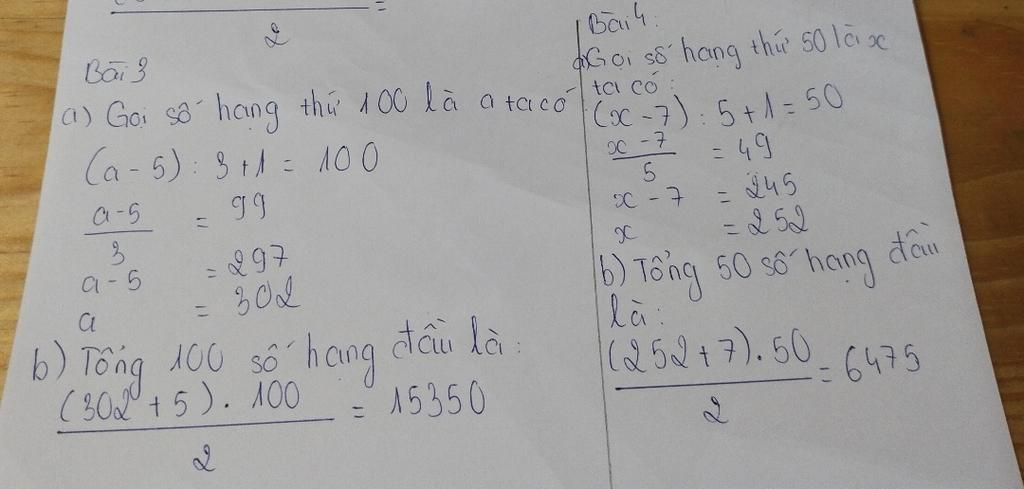 2
=
Bài 3
a) Gọi số hạng thứ 100 là a ta có
(a-5) : 3+1 = 100
a-5
3
= 99
a-5 = 297
a = 302
b) Tổng 100 số hạng đầu là:
(302+5).100
2
= 15350
Bài 4:
a) Gọi số hạng thứ 50 là x
ta có:
(x-7) : 5+1 = 50
x-7
5
= 49
x-7 = 245
x = 252
b) Tổng 50 số hạng đầu
là:
(252+7).50
2
= 6475